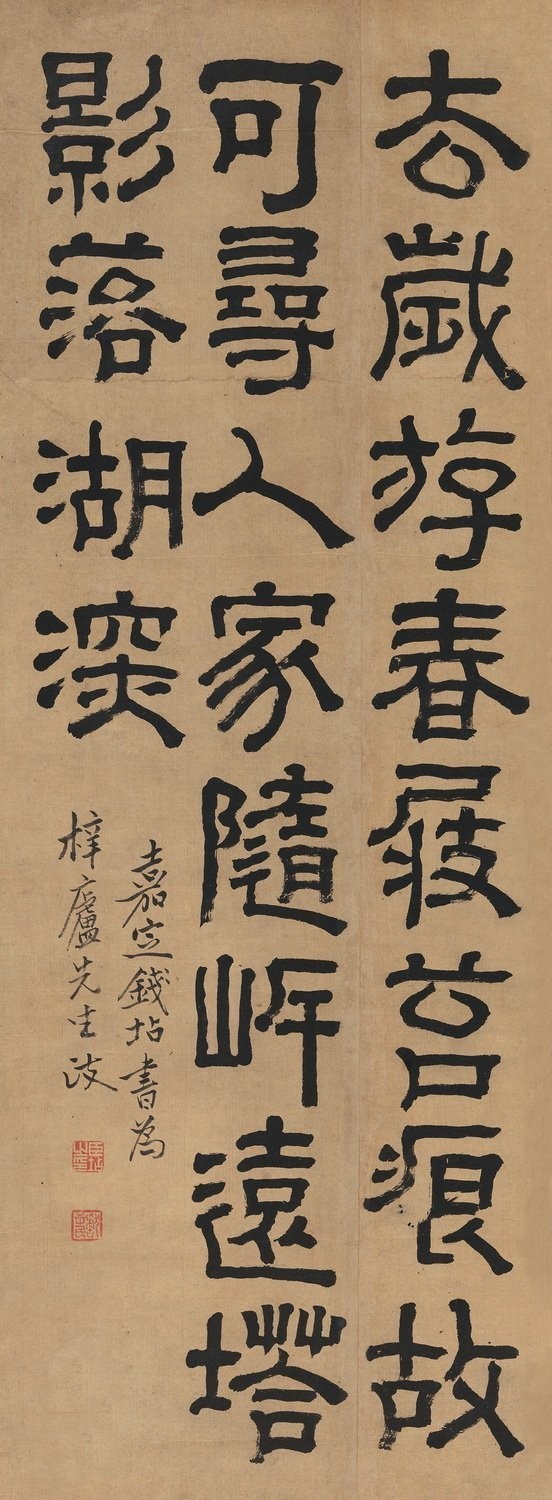 去歲斿春屐苔痕故
可尋人家隨岸遠塔
影落湖深
嘉定錢坫書為
梓廬先生政